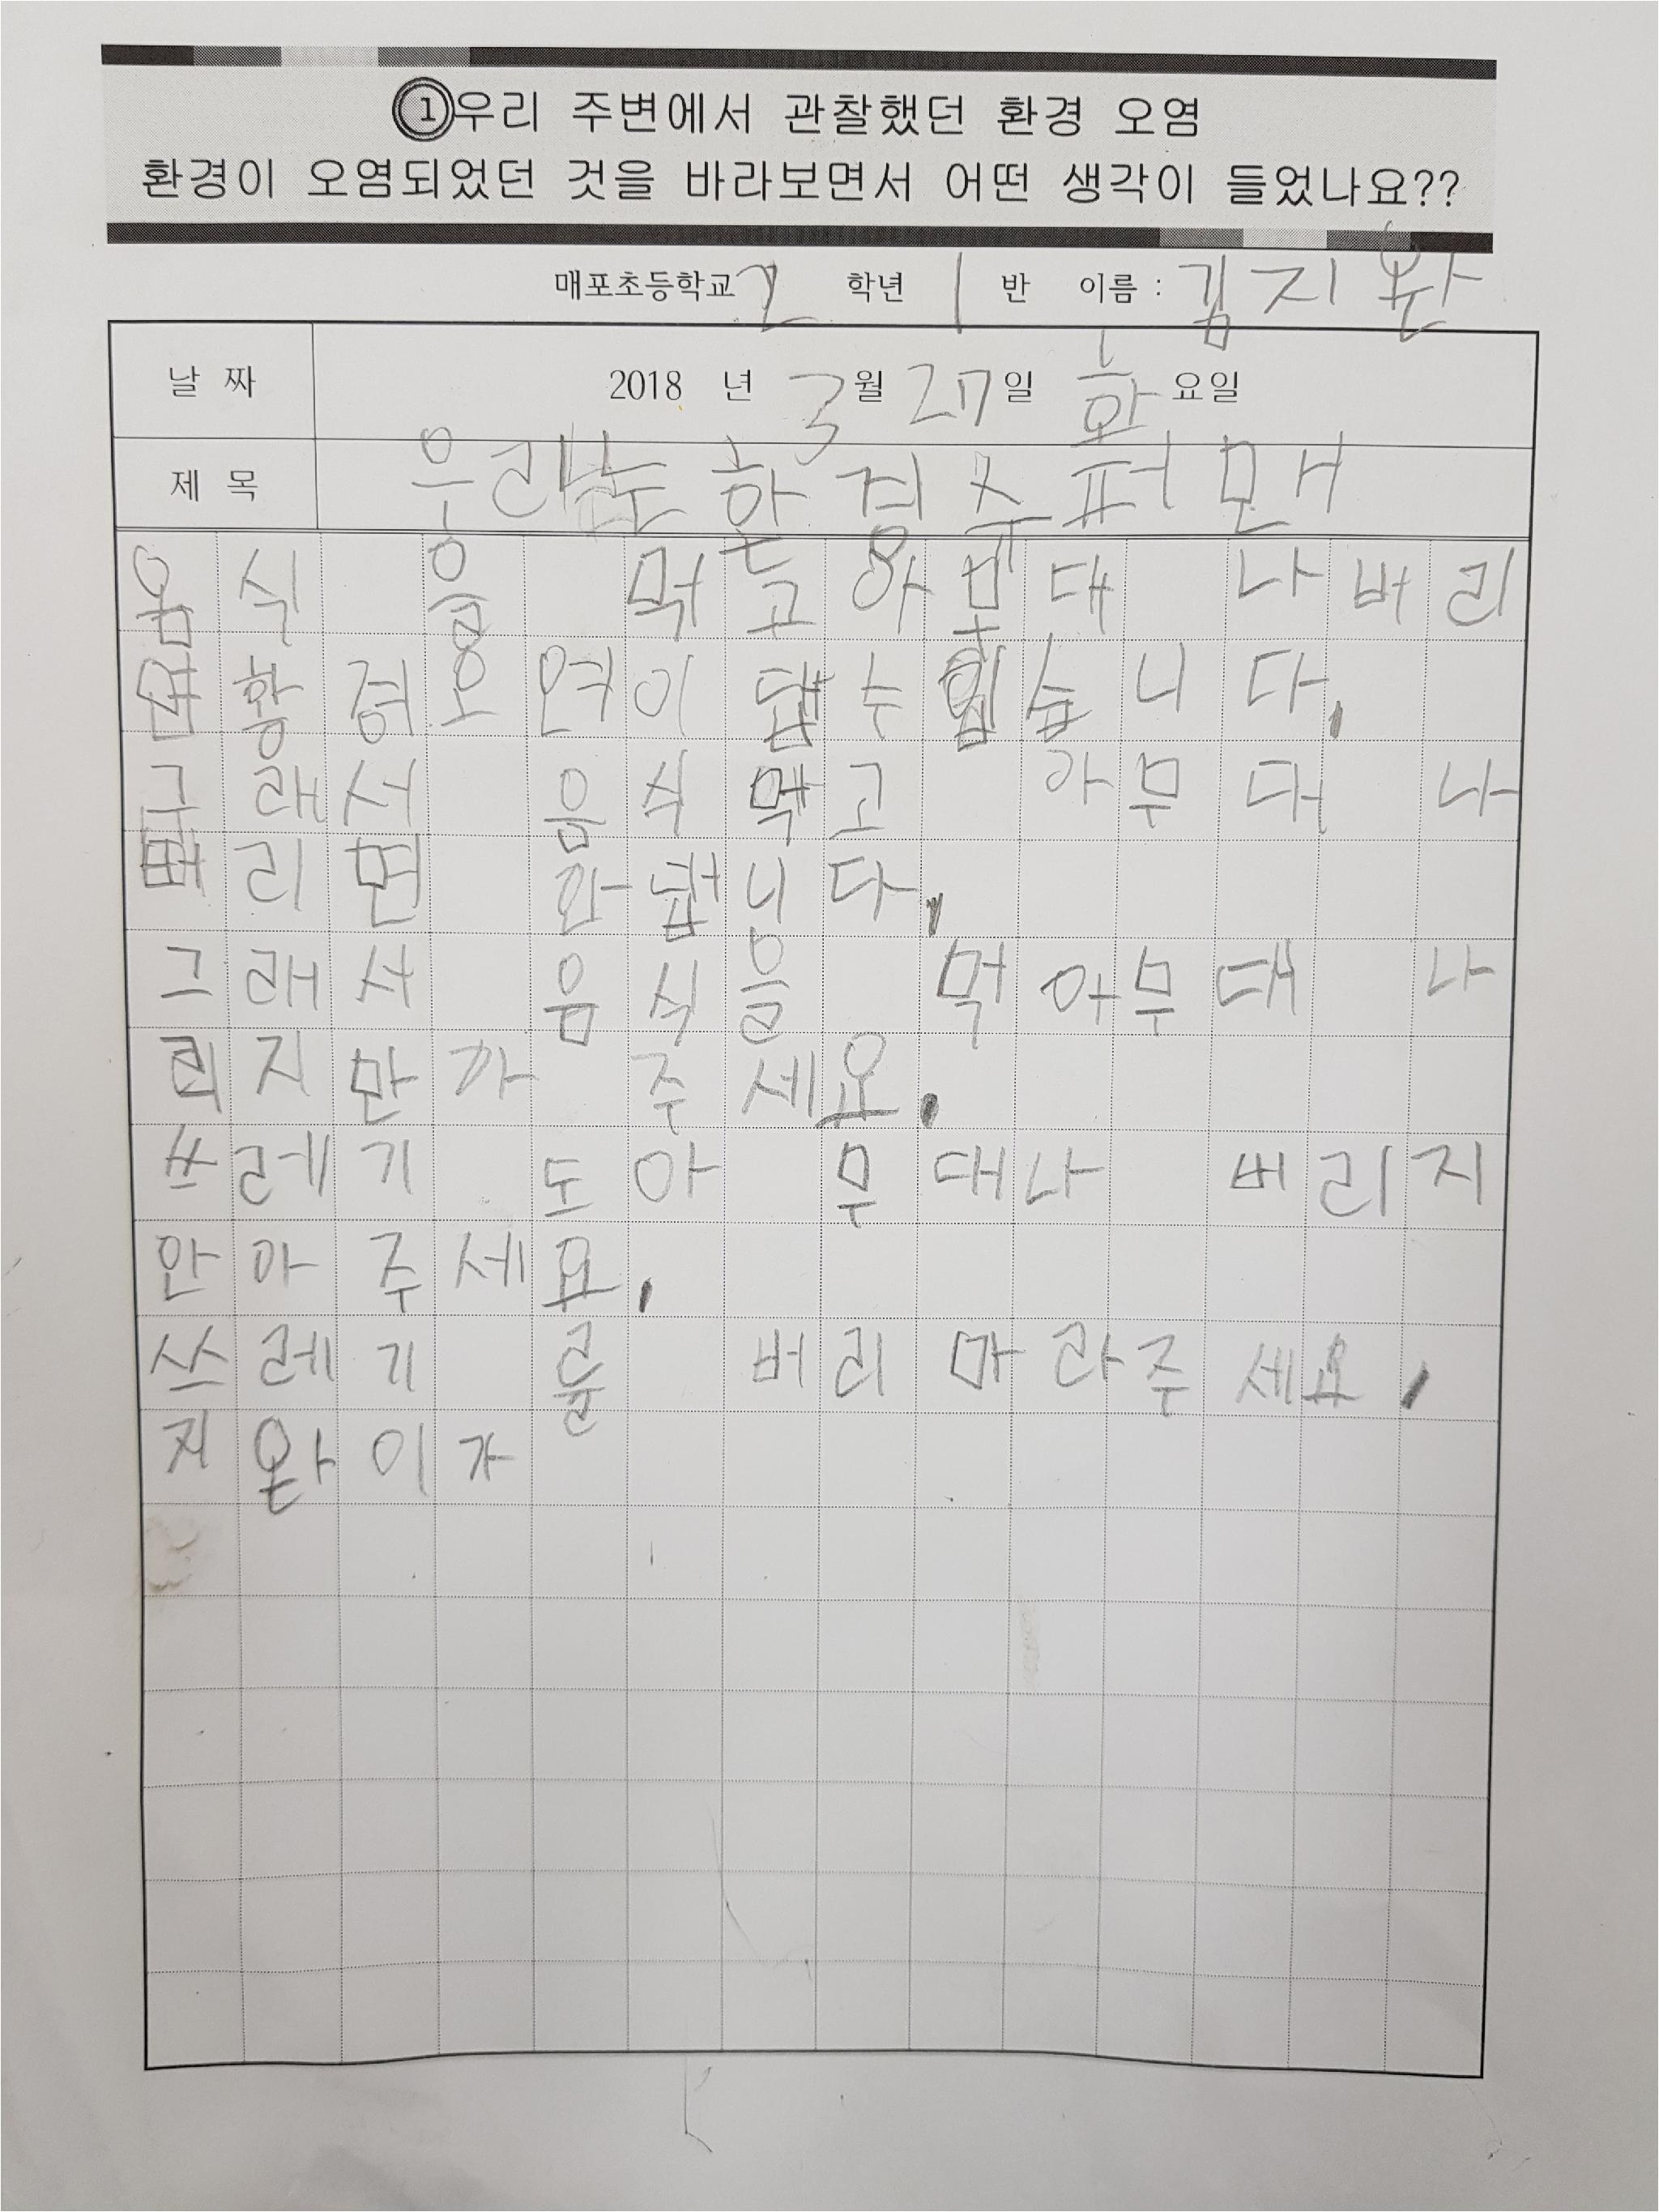 ①우리 주변에서 관찰했던 환경 오염
환경이 오염되었던 것을 바라보면서 어떤 생각이 들었나요??
매포초등학교 2 학년 1 반 이름 : 김지완
날 짜 2018 년 3월 27일 화요일
제 목 우리는 환경수퍼맨
음식 을 먹고아무대 나버리
면황경오연이 됍수입습니다.
그래서 음식먹고 아무대 나
버리면 안됍니다.
그래서 음식을 먹아무대 나
리지만가 주세요.
쓰레기 도아 무대나 버리지
안아주세요.
쓰레기 를 버리마라주세요.
지완이가